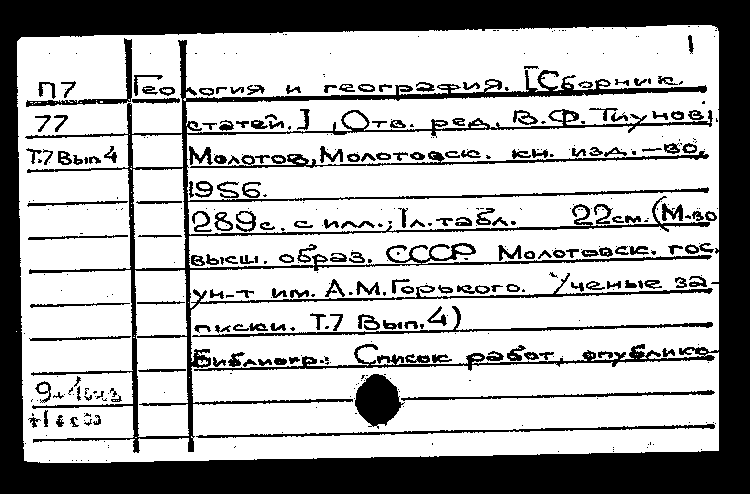 1
П7 Геология и география. [Сборник
77 статей.] [Отв. ред. В.Ф. Тиунов].
Т.7 Вып.4 Молотов, Молотовск. кн. изд.-во,
1956.
289с. с илл.; 1л.табл. 22см. (М-во
высш. образ. СССР. Молотовск. гос.
ун-т им. А.М.Горького. Ученые за-
писки. Т.7 Вып.4)
Библиогр.: Список работ, опублико-